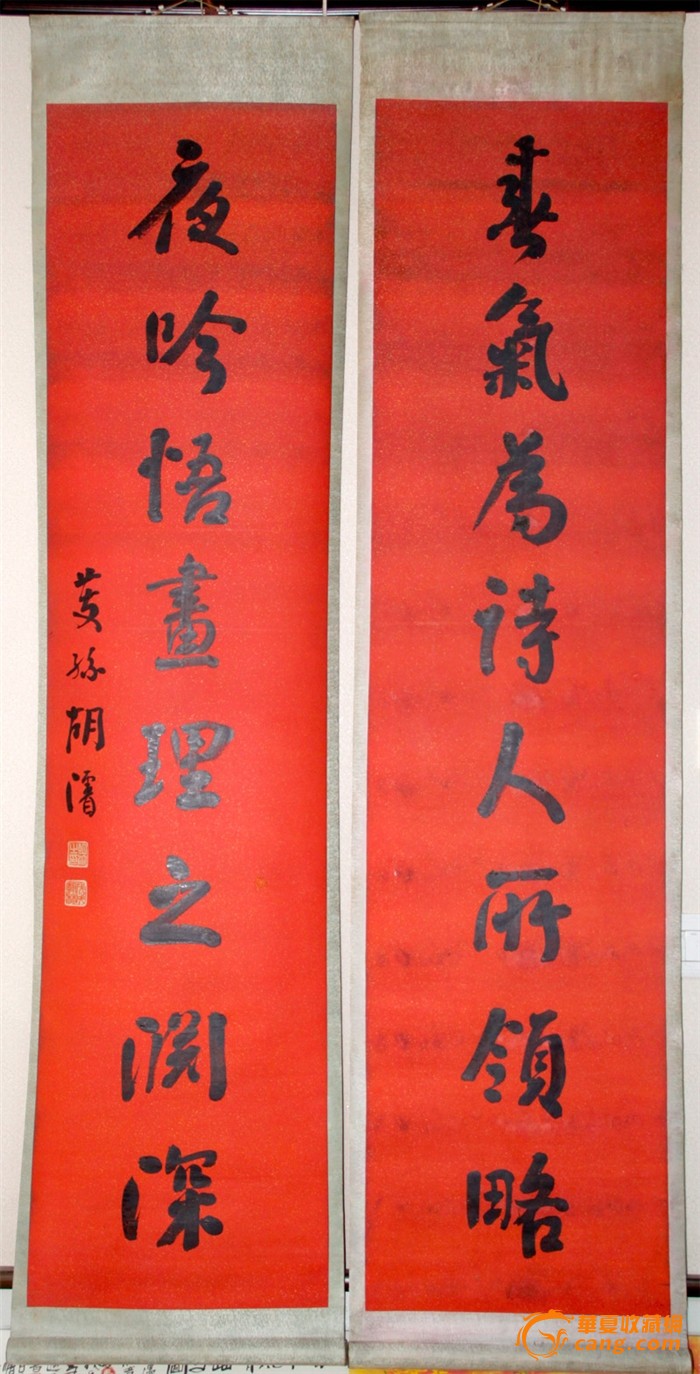 春氣為詩人所領略
夜吟悟畫理之淵深
孫胡濬
華夏收藏網
cang.com